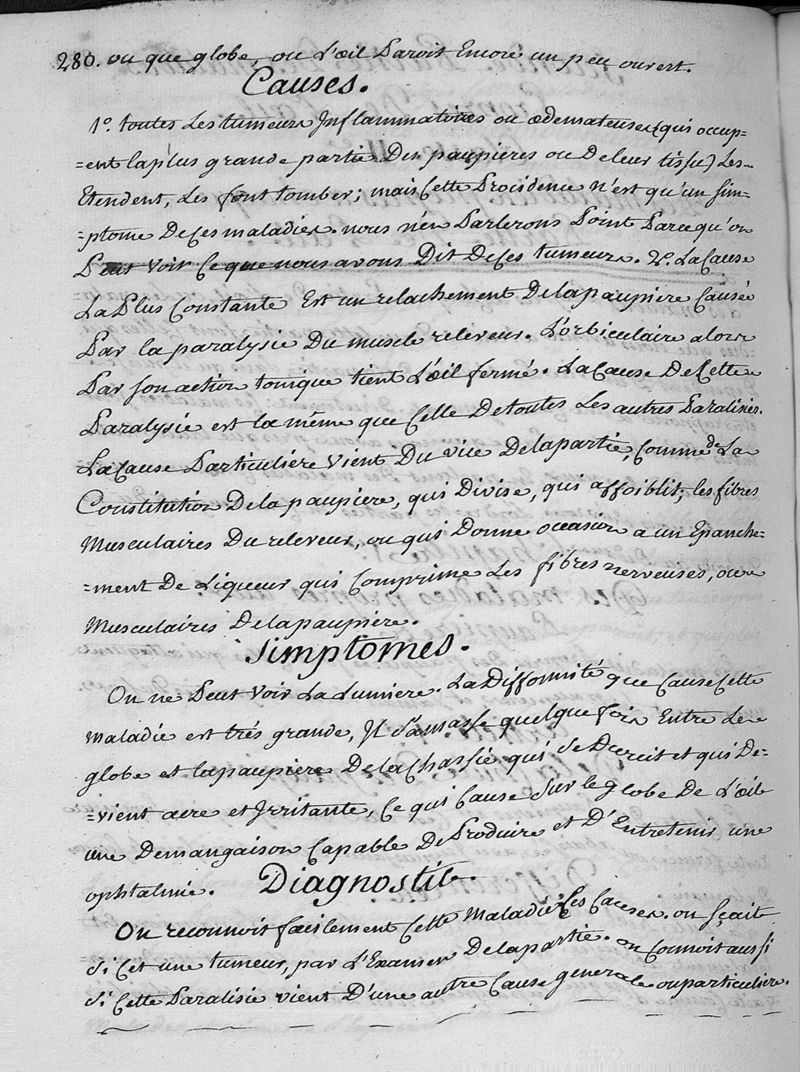 280. ou que globe, ou L'œil Paroit Encore un peu ouvert.
Causes.
1º. toutes Les tumeurs Inflammatoires ou œdemateuses (qui occup-
=ent la plus grande partie Des paupieres ou De leur tissu) Les
Etendent, Les font tomber; mais Cette Procidence n'est qu'un sim-
=ptome De Ces maladies. nous n'en Parlerons Point Parce qu'on
Peut voir Ce que nous avons Dit De Ces tumeurs. 2º. La Cause
La Plus Constante Est un relachement De la paupiere Causée
Par la paralysie Du muscle releveur. L'orbiculaire alors
Par son action tonique tient L'œil fermé. La Cause De Cette
Paralysie est la même que Celle De toutes Les autres Paralisies.
La Cause Particuliere vient Du vice De la partie, Comme de La
Constitution De la paupiere, qui Divise, qui affoiblit, les fibres
Musculaires Du releveur, ou qui Donne occasion a un Epanche-
=ment De Liqueur qui Comprime Les fibres nerveuses, ou
Musculaires De la paupiere.
Simptomes.
On ne Peut voir La Lumiere. La Difformité que Cause Cette
maladie est trés grande, Il s'amasse quelque fois Entre Le
globe et la paupiere De la Chassie qui se Durcit et qui De-
=vient acre et Irritante, Ce qui Cause sur le globe De L'œil
une Demangaison Capable De Produire et D'Entretenir une
ophtalmie. Diagnostic.
On reconnoit facilement Cette Maladie & Les Causes. on sçait
si C'est une tumeur, par L'Examen De la partie. on Connoit aussi
si Cette Paralisie vient D'une autre Cause generale ou particuliere.